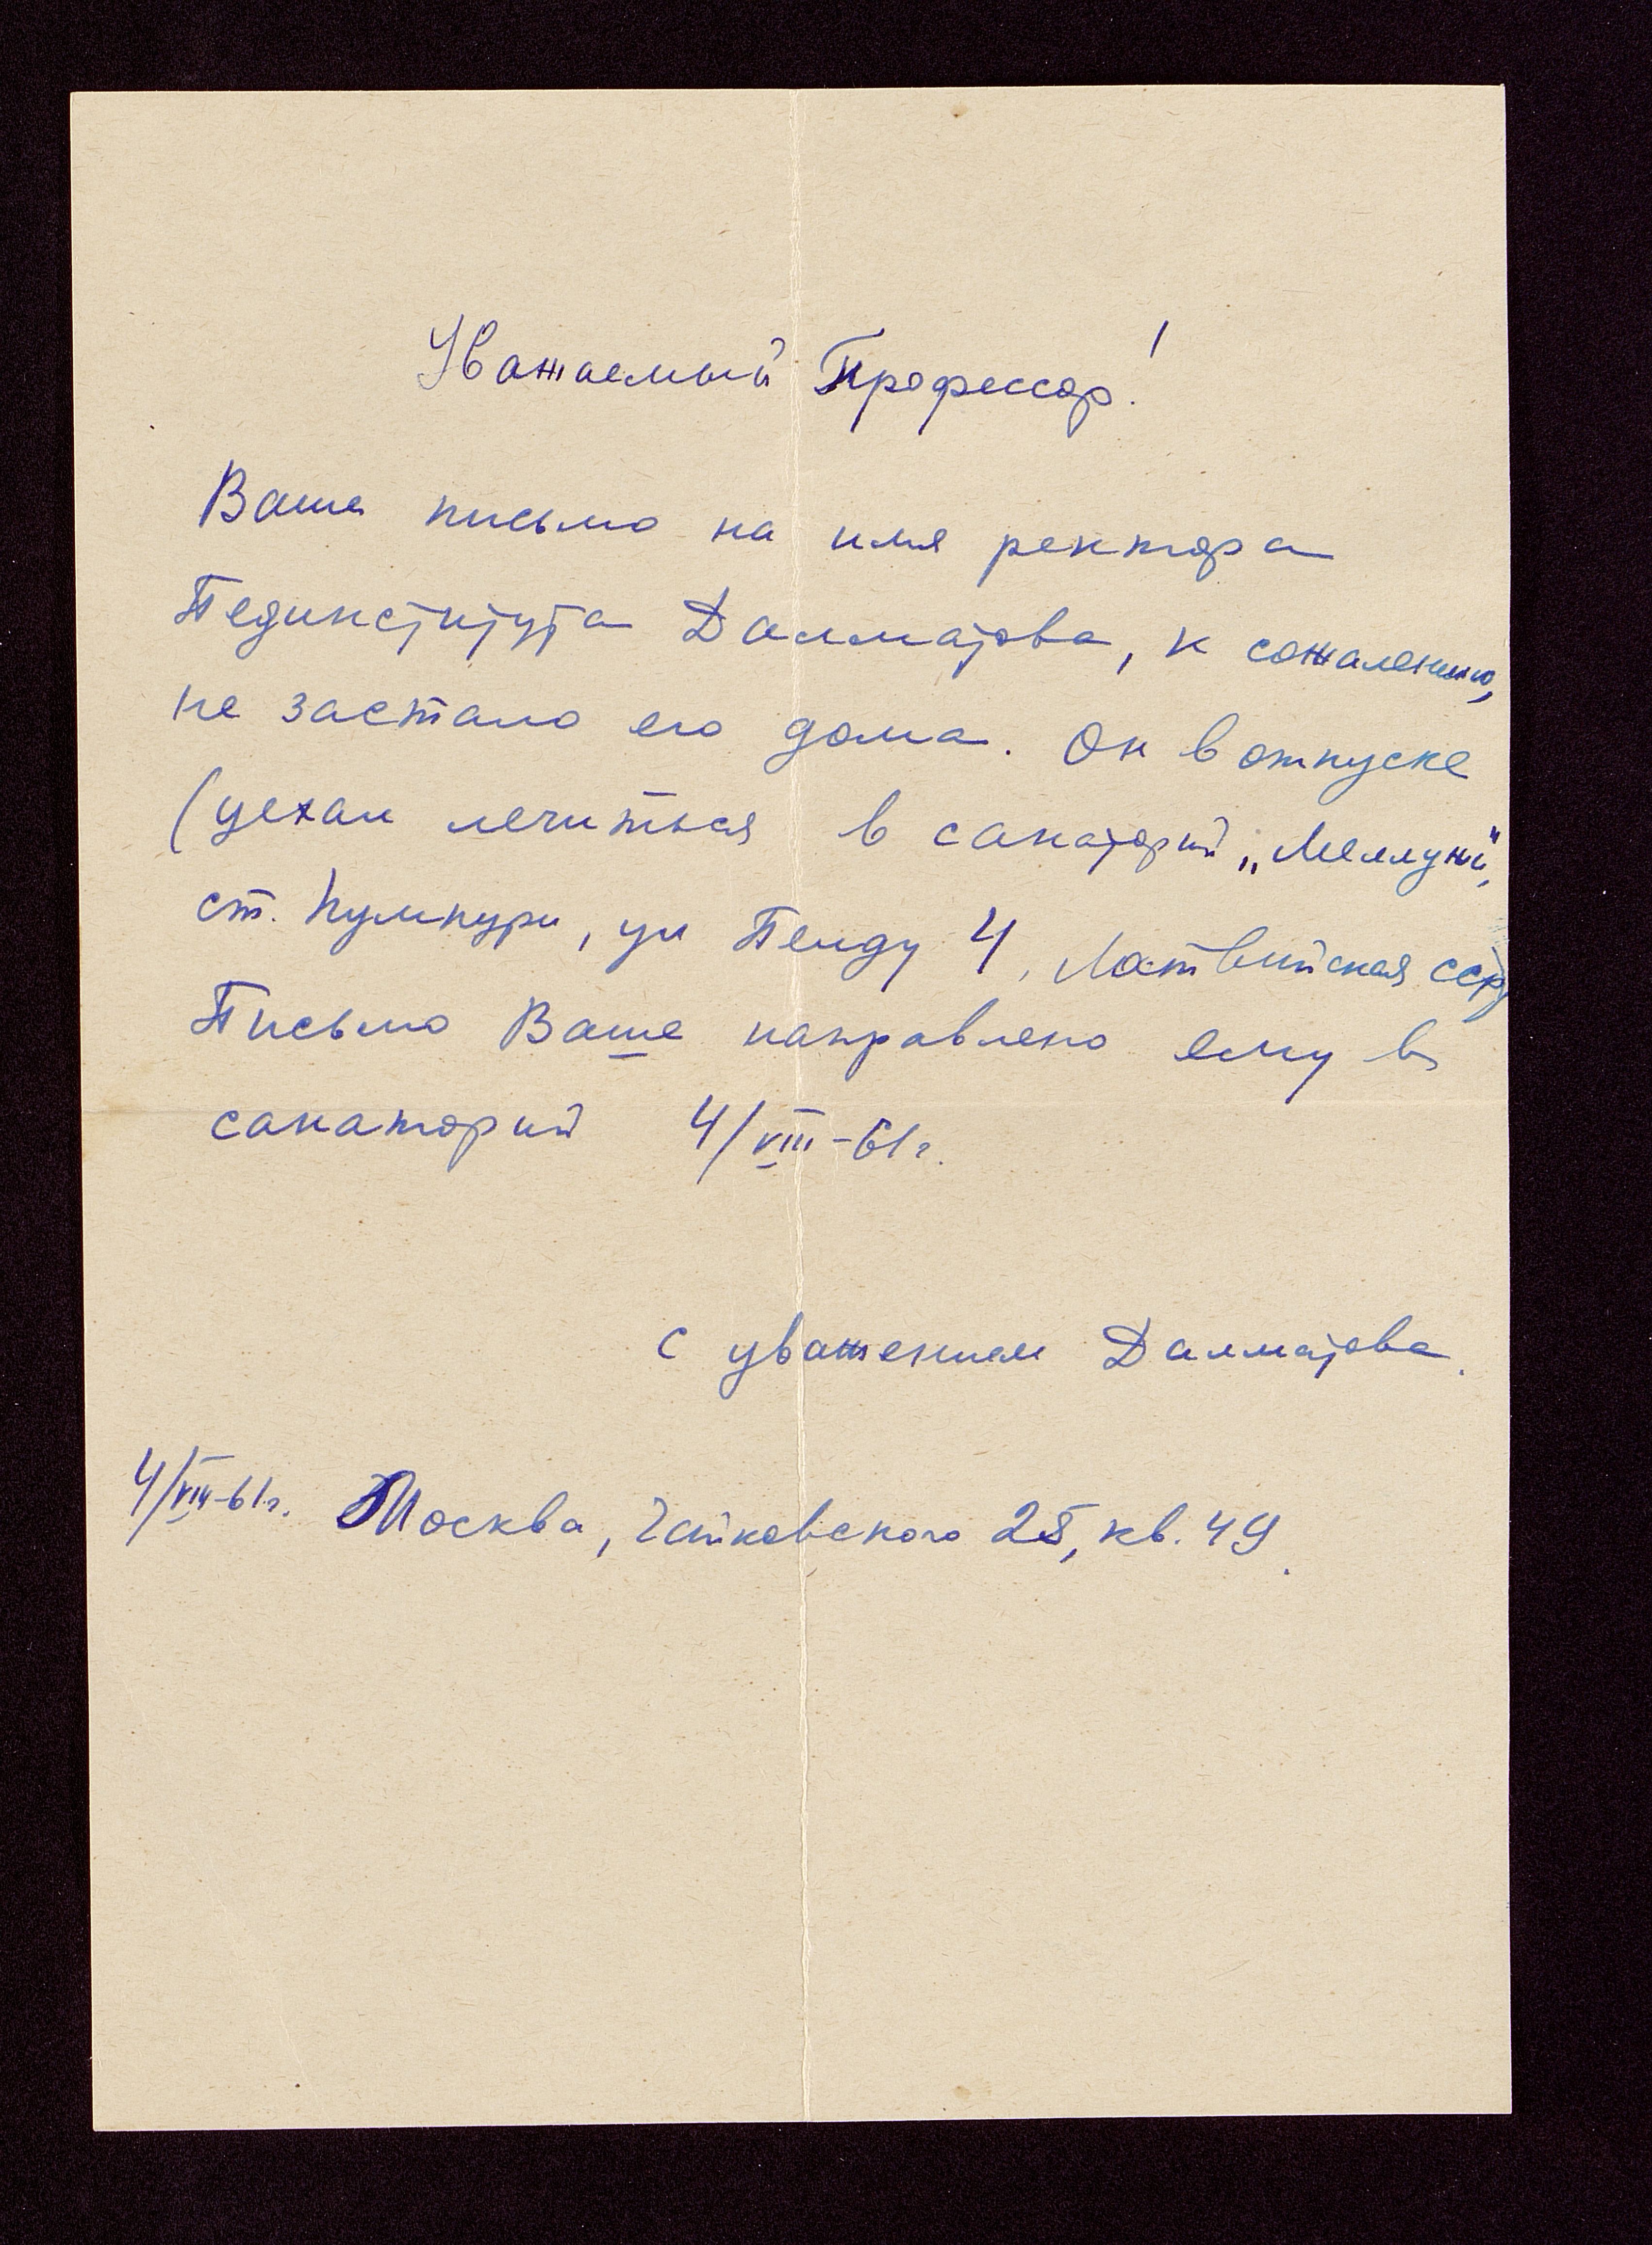 Уважаемый Профессор!
Ваше письмо на имя ректора
Пединститута Далматова, к сожалению,
не застало его дома. Он в отпуске
(уехал лечиться в санаторий „Меллужи",
ст. Пумпури, ул Пенду 4, Латвийская ССР
Письмо Ваше направлено ему в
санаторий 4/VIII-61г.
С уважением Далматова.
4/VIII-61г. Москва, Чайковского 25, кв. 49.